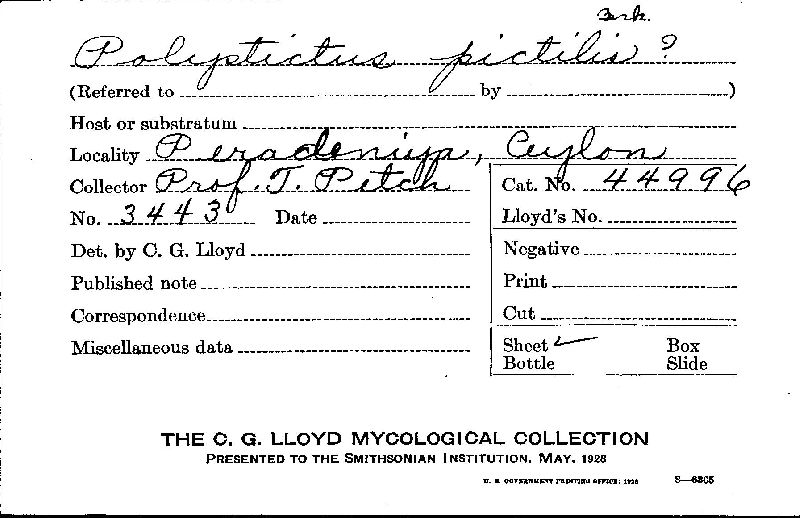 Berk.
Polystictus pictilis ?
(Referred to by )
Host or substratum
Locality Peradeniya, Ceylon
Collector Prof. T. Petch
Cat. No. 44996
No. 3443 Date
Lloyd's No.
Det. by C. G. Lloyd
Negative
Published note
Print
Correspondence
Cut
Miscellaneous data
Sheet ✓ Box
Bottle Slide
THE C. G. LLOYD MYCOLOGICAL COLLECTION
PRESENTED TO THE SMITHSONIAN INSTITUTION, MAY, 1928
U. S. GOVERNMENT PRINTING OFFICE: 1928
S—6305